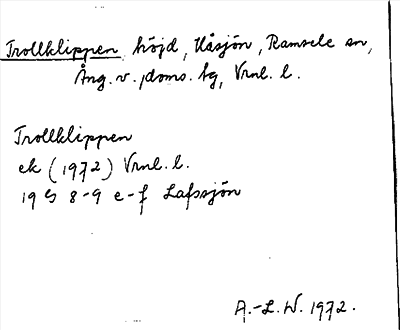 Trollklippen, höjd, Håsjön, Ramsele sn,
Ång. v. doms. hg, Vrnl. l.
Trollklippen
ek (1972) Vrnl. l.
19 G 8-9 e-f Lafssjön
A.-L. W. 1972.